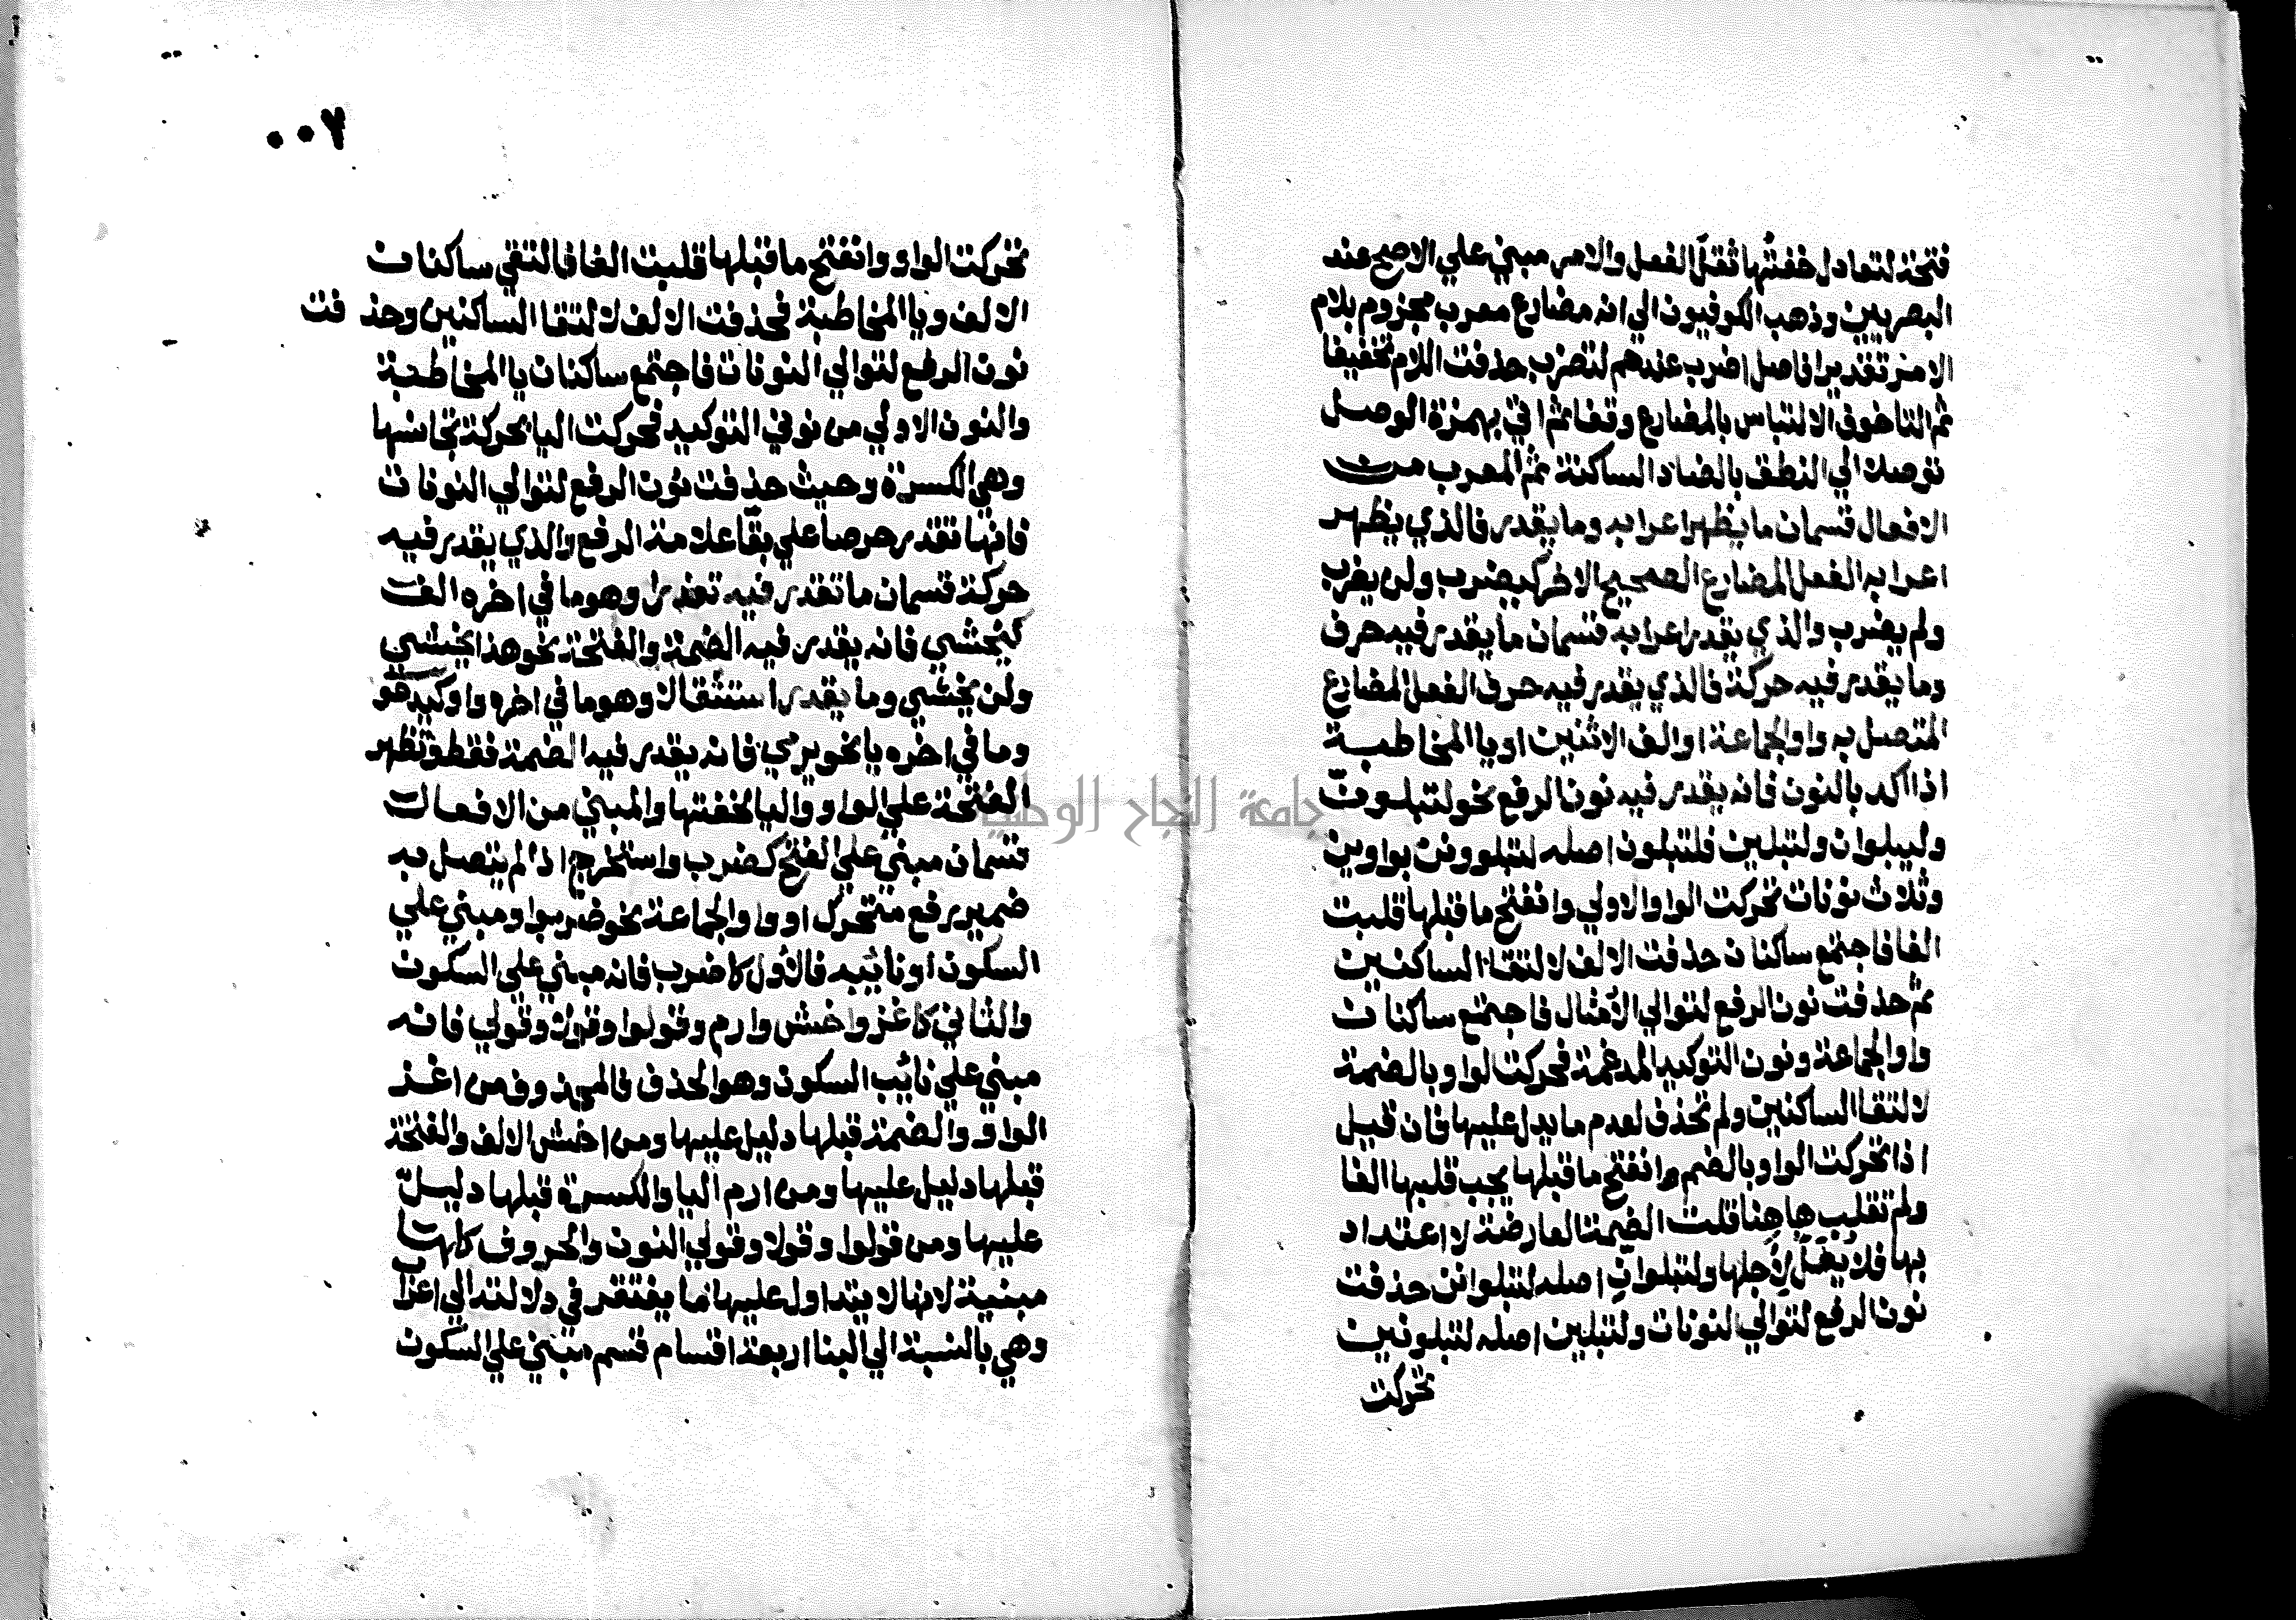 فتحة لتعادل خفتها ثقل الفعل والامر مبني علي الاصح عند
البصريين وذهب الكوفيون الي انه مضارع معرب مجزوم بلام
الامر تقديرا فاصل اضرب عندهم لتضرب حذفت اللام تخفيفا
ثم التا خوف الالتباس بالمضارع وقفا ثم اتي بهمزة الوصل
توصلا الي النطق بالضاد الساكنة ثم المعرب من
الافعال قسمان ما يظهر اعرابه وما يقدر فالذي يظهر
اعرابه الفعل المضارع الصحيح الاخر كيضرب ولن يضرب
ولم يضرب والذي يقدر اعرابه قسمان ما يقدر فيه حرف
وما يقدر فيه حركة فالذي يقدر فيه حرف الفعل المضارع
المتصل به واو الجماعة او الف الاثنين او يا المخاطبة
اذا اكد بالنون فانه يقدر فيه نون الرفع نحو لتبلون
وليبلوان ولتبلين فلتبلون اصله لتبلوونن بواوين
وثلاث نونات تحركت الواو الاولي وانفتح ما قبلها قلبت
الفا فاجتمع ساكنان حذفت الالف لالتقا الساكنين
ثم حذفت نون الرفع لتوالي الامثال فاجتمع ساكنان
واو الجماعة ونون التوكيد المدغمة فحركت الواو بالضمة
لالتقا الساكنين ولم تحذف لعدم ما يدل عليها فان قيل
اذا تحركت الواو بالضم وانفتح ما قبلها يجب قلبها الفا
ولم تقلب هاهنا قلت الضمة العارضة لا اعتداد
بها فلا يعل لاجلها ولتبلوان اصله لتبلوانن حذفت
نون الرفع لتوالي النونات ولتبلين اصله لتبلونين
تحركت
٠٠٧
تحركت الواو وانفتح ما قبلها قلبت الفا فالتقي ساكنان
الالف ويا المخاطبة فحذفت الالف لالتقا الساكنين وحذفت
نون الرفع لتوالي النونات فاجتمع ساكنان يا المخاطبة
والنون الاولي من نوني التوكيد فحركت اليا بحركة تجانسها
وهي الكسرة وحيث حذفت نون الرفع لتوالي النونات
فانها تقدر حرصا علي بقا علامة الرفع والذي يقدر فيه
حركة قسمان ما تقدر فيه تعذرا وهو ما في اخره الف
كيخشي فانه يقدر فيه الضمة والفتحة نحو هذا يخشي
ولن يخشي وما يقدر استثقالا وهو ما في اخره واو كيدعو
وما في اخره يا نحو يرمي فانه يقدر فيه الضمة فقط وتظهر
الفتحة علي الواو واليا لخفتها والمبني من الافعال
قسمان مبني علي الفتح كضرب واستخرج اذا لم يتصل به
ضمير رفع متحرك او واو الجماعة نحو ضربوا ومبني علي
السكون او نايبه فالاول كاضرب فانه مبني علي السكون
والثاني كاغز واخش وارم وقولوا وقولا وقولي فانه
مبني علي نائب السكون وهو الحذف فالمحذوف من اغز
الواو والضمة قبلها دليل عليها ومن اخش الالف والفتحة
قبلها دليل عليها ومن ارم اليا والكسرة قبلها دليل
عليها ومن قولوا وقولا وقولي النون والحروف كلها
مبنية لانها لا يتداول عليها ما يفتقر في دلالته الي اعراب
وهي بالنسبة الي البنا اربعة اقسام قسم مبني علي السكون
جامعة النجاح الوطنية